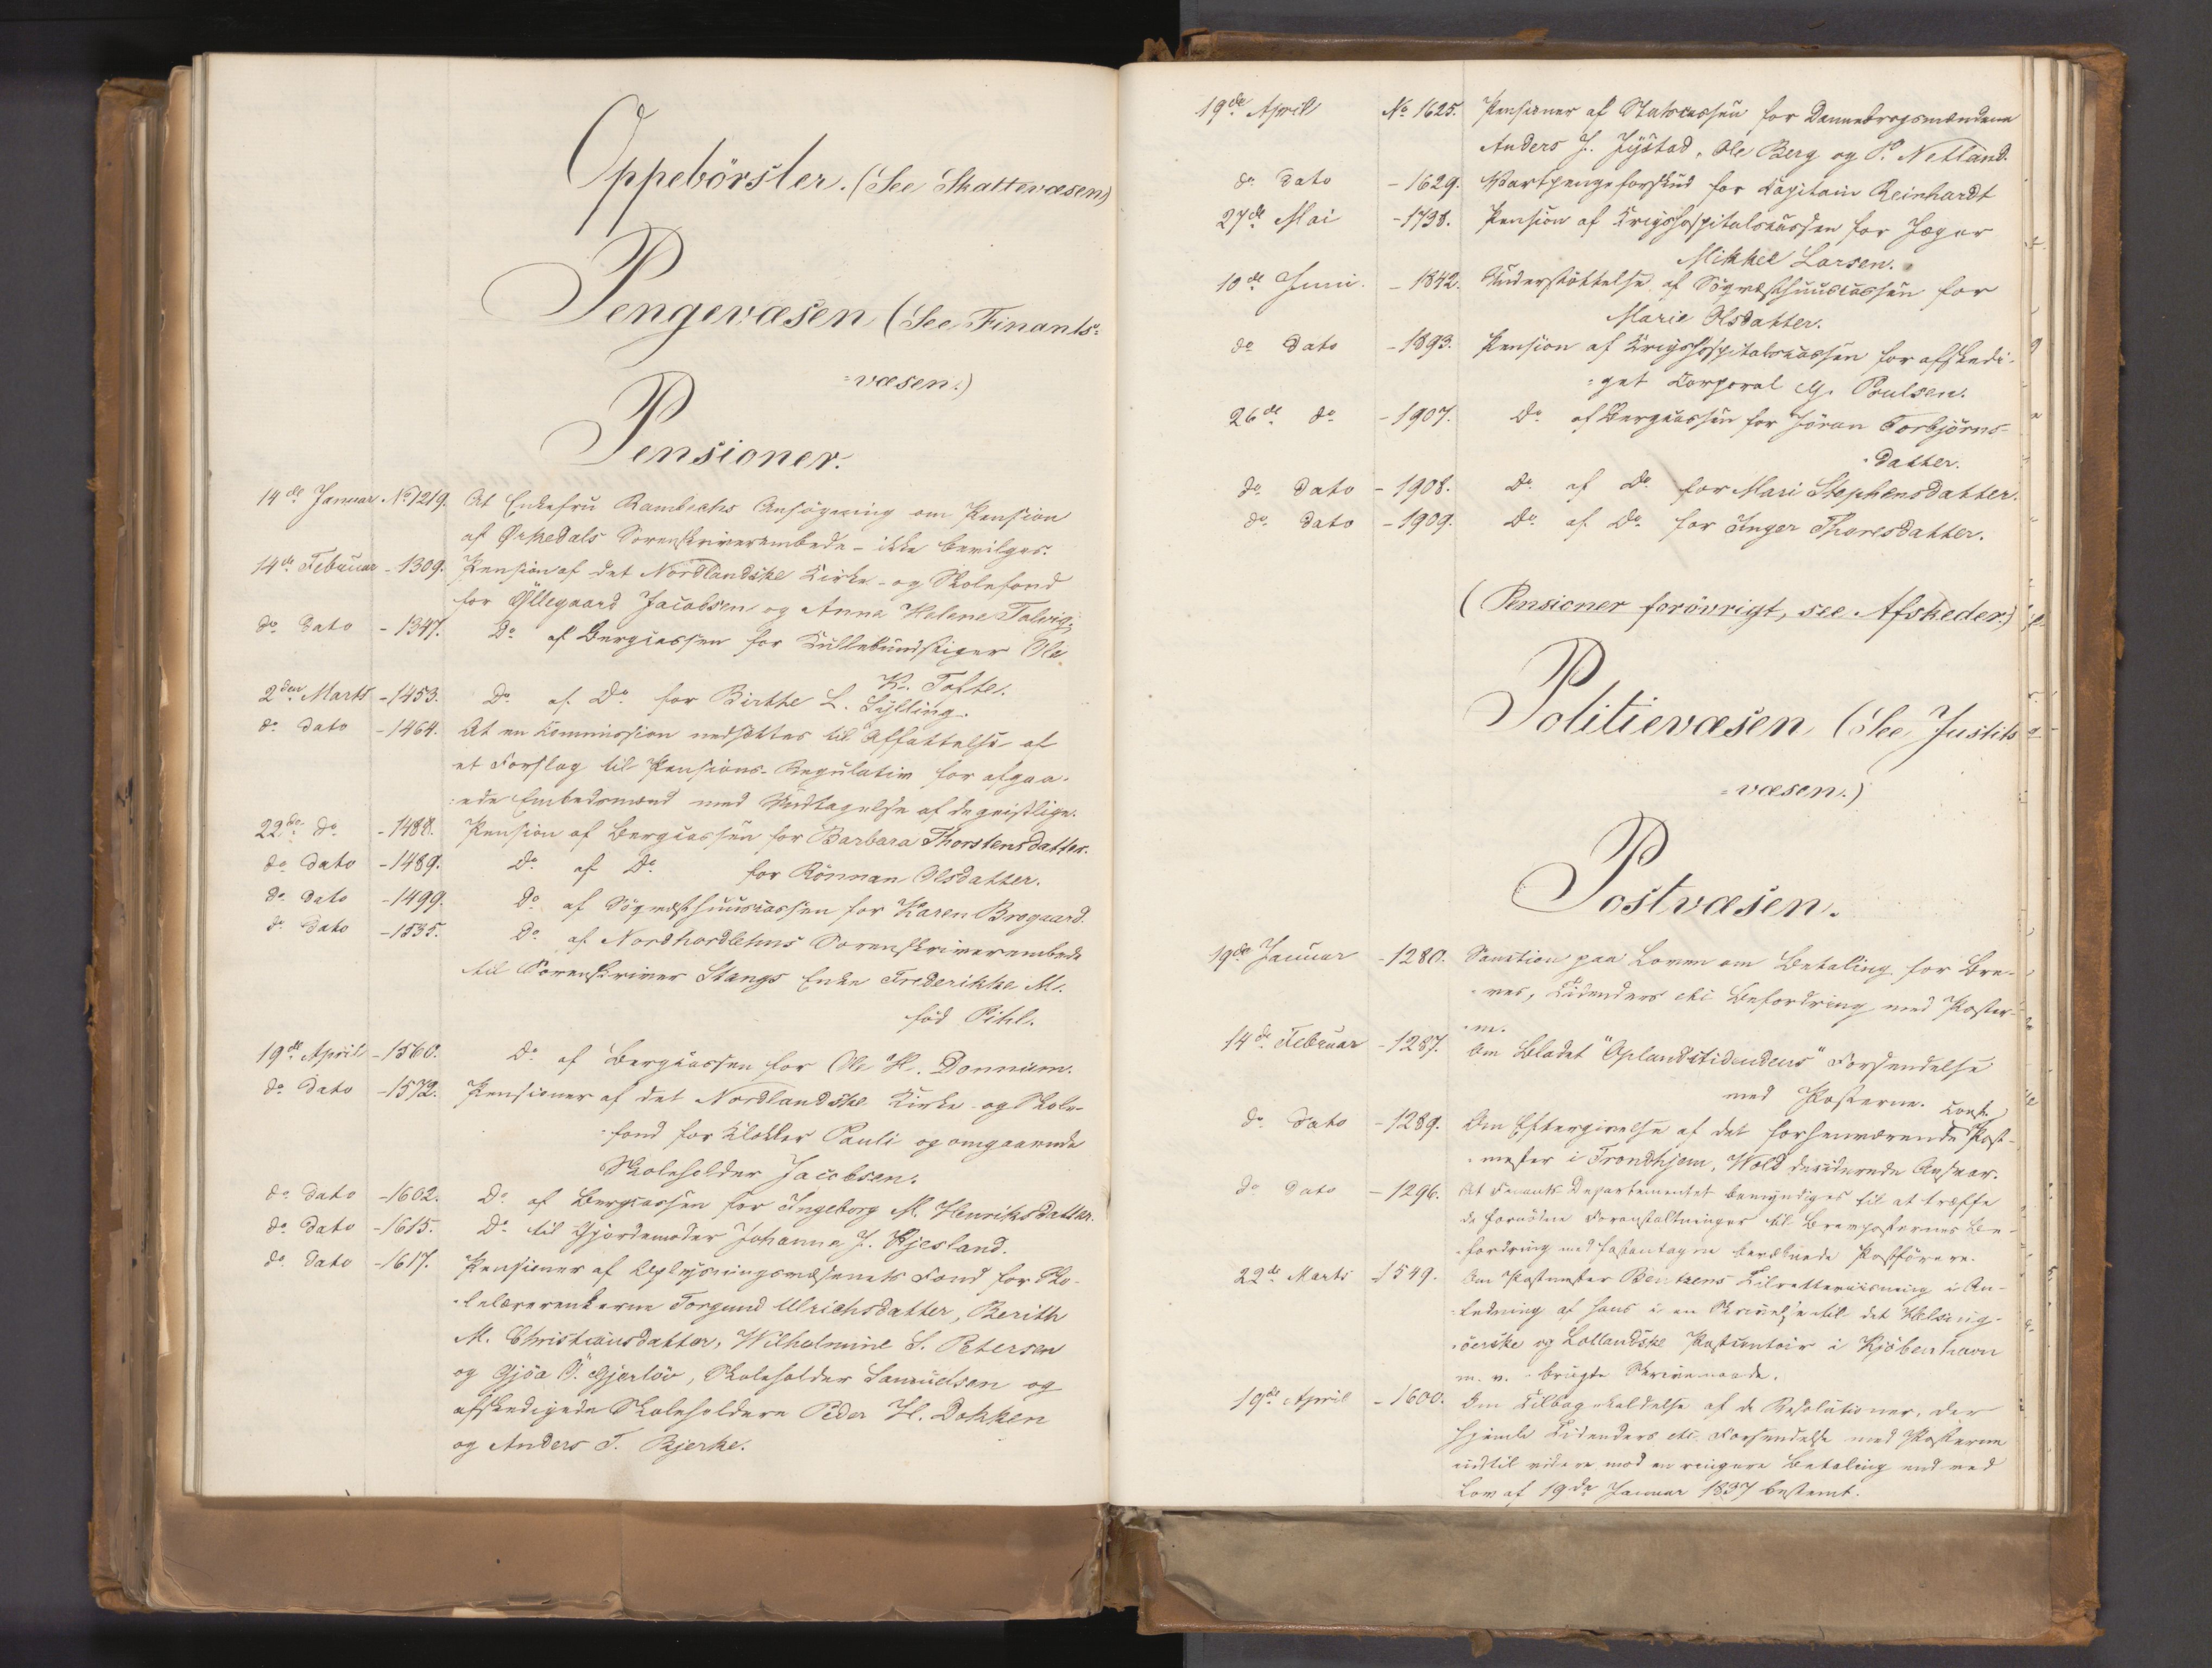 Oppebörsler. (See Skattevæsen)
Pengevæsen (See Finants-
=væsen.)
Pensioner.
14de Januar. No 1219. At Enkefru Rambechs Ansögning om Pension
af Örkedals Sorenskriverembede - ikke bevilges.
14de Februar - 1309. Pension af det Nordlandske Kirke- og Skolefond
for Öllegaard Jacobsen og Anna Helena Talvig.
do Dato - 1347. Do af Bergcassen for Ole
K. Tofte.
2den Marts - 1453. Do af Do for Birthe L. Sylling.
do Dato - 1464. At en Kommission nedsættes til Affattelse af
et Forslag til Pensions-Regulativ for afgaa-
=ede Embedsmænd med Undtagelse af de geistlige.
22de do - 1488. Pension af Bergcassen for Barbara Thorstensdatter.
do Dato - 1489. Do af Do for Rönnau Olsdatter.
do Dato - 1499. Do af Söqvæsthuuscassen for Karen Brogaard.
do Dato - 1535. Do af Nordhordlehns Sorenskriverembede
til Sorenskriver Stangs Enke Frederikke M.
föd Pihl.
19de April - 1560. Do af Bergcassen for Ole H. Donnum.
do Dato - 1572. Pensioner af det Nordlandske Kirke- og Skole-
=fond for Klokker Pauli og omgaaende
Skoleholder Jacobsen.
do Dato - 1602. Do af Bergcassen for Ingeborg M. Henriksdatter.
do Dato - 1615. Do til Gjordemoder Johanna J. Kjesland.
do Dato - 1617. Pensioner af Oplysningsvæsenets Fond for Sko-
=lelærerenkerne Torgund Ulrichsdatter, Berith
M. Christiansdatter, Wilhelmine S. Petersen
og Gjöa O. Gjerlöv, Skoleholder Samuelsen og
afskedigede Skoleholdere Peder H. Dokken
og Anders T. Bjerke.
19de April No 1625. Pensioner af Statscassen for Dannebrogsmændene
Anders J. Jystad, Ole Berg og P. Netland.
do Dato - 1629. Vartpengeforskud for Capitain Reinhardt
27de Mai - 1738. Pension af Krigshospitalscassen for Jæger
Mikkel Larsen.
10de Juni. - 1842. Understöttelse af Söqvæsthuuscassen for
Marie Olsdatter.
do Dato - 1893. Pension af Krigshospitalscassen for afskedi-
=get Corporal G. Poulsen.
26de do - 1907. Do af Bergcassen for Jöran Torbjörns-
=datter.
do Dato - 1908. Do af Do for Mari Stephensdatter.
do Dato - 1909. Do af Do for Inger Thoresdatter.
(Pensioner forövrigt, see Afskeder.)
Politievæsen (See Justits
=væsen.)
Postvæsen.
19de Januar - 1280. Sanction paa Loven om Betaling for Bre-
=ves, Tidenders etc Befordring med Poster-
=ne.
14de Februar - 1287. Om Bladet "Oplandstidendens" Forsendelse
med Posterne.
do Dato - 1289. Om Eftergivelse af det forhenværende const. Post-
=mester i Trondhjem, Wold desiderede Ansvar.
do Dato - 1296. At Finants-Departementet bemyndiges til at træffe
de fornödne Foranstaltninger til Brevposternes Be-
=fordring med fastantagne beræbnede Postförere.
22de Marts - 1549. Om Postmester Bentzens Tilretteviisning i An-
=ledning af hans i en Skrivelse til det Helsing-
=örske og Lollandske Postcontoir i Kjöbenhavn
m. v. brugte Skrivemaade.
19de April - 1600. Om Tilbagekaldelse af de Resolutioner, der
hjemle Tidenders etc. Forsendelse med Posterne
indtil videre mod en ringere Betaling end ved
Lov af 19de Januar 1837 bestemt.